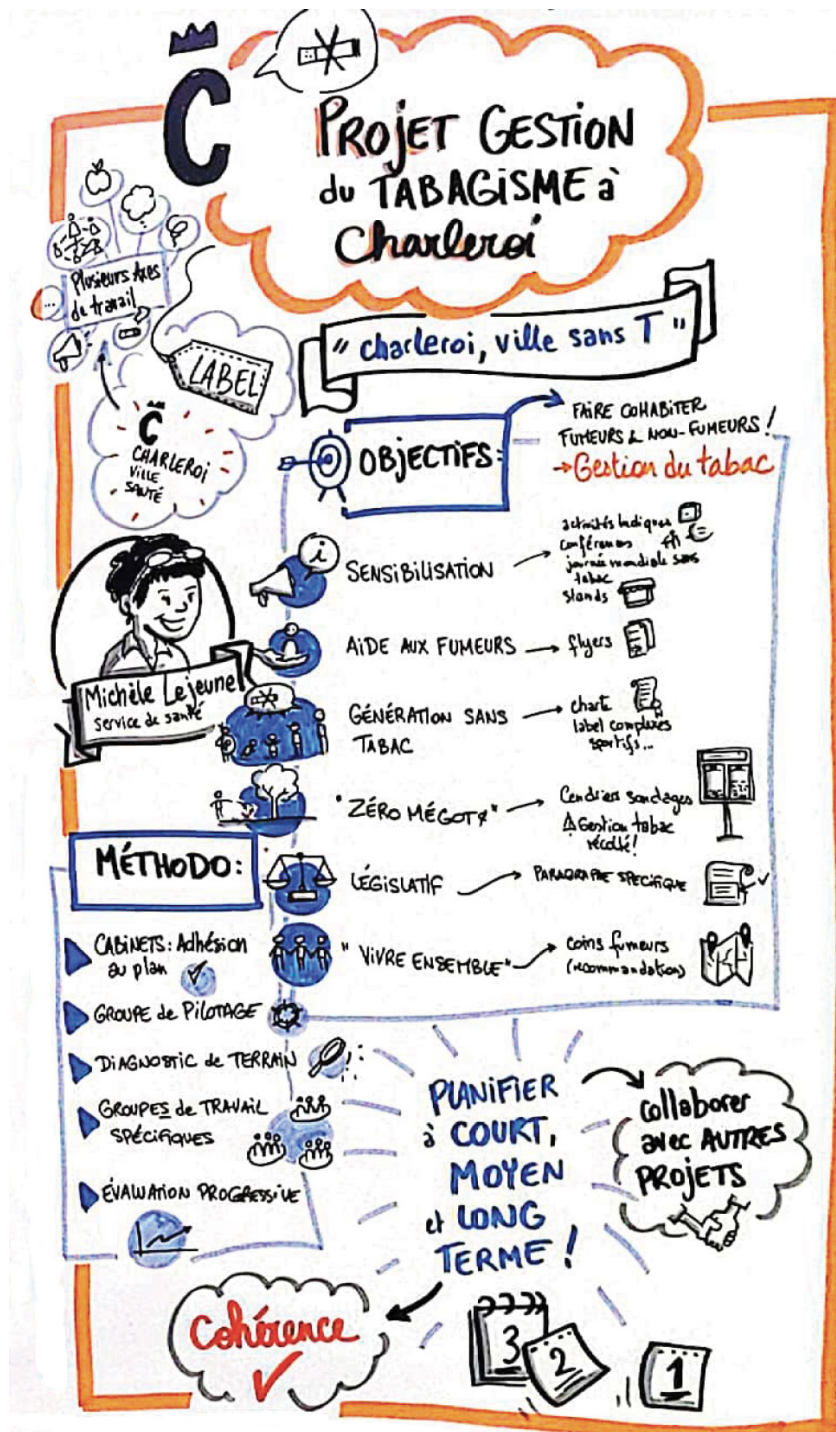 Č
PROJET GESTION
du TABAGISME à
Charleroi
Plusieurs Axes
de travail
...
LABEL
Č
CHARLEROI
VILLE
SANTÉ
" charleroi, ville sans T "
OBJECTIFS:
FAIRE COHABITER
FUMEURS & NON-FUMEURS !
→ Gestion du tabac
SENSIBILISATION
activités ludiques
conférences
journée mondiale sans
tabac
stands
AIDE AUX FUMEURS
flyers
Michèle Lejeune
Service de santé
GÉNÉRATION SANS
TABAC
charte
label complexes
sportifs...
"ZÉRO MÉGOTS"
Cendriers sondages
⚠ Gestion tabac
récolté!
MÉTHODO:
LÉGISLATIF
PARAGRAPHE SPÉCIFIQUE
"VIVRE ENSEMBLE"
coins fumeurs
(recommandation)
CABINETS: Adhésion
au plan
GROUPE de PILOTAGE
DIAGNOSTIC de TERRAIN
GROUPES de TRAVAIL
SPÉCIFIQUES
ÉVALUATION PROGRESSIVE
PLANIFIER
à COURT,
MOYEN
et LONG
TERME !
Collaborer
avec AUTRES
PROJETS
Cohérence
3
2
1